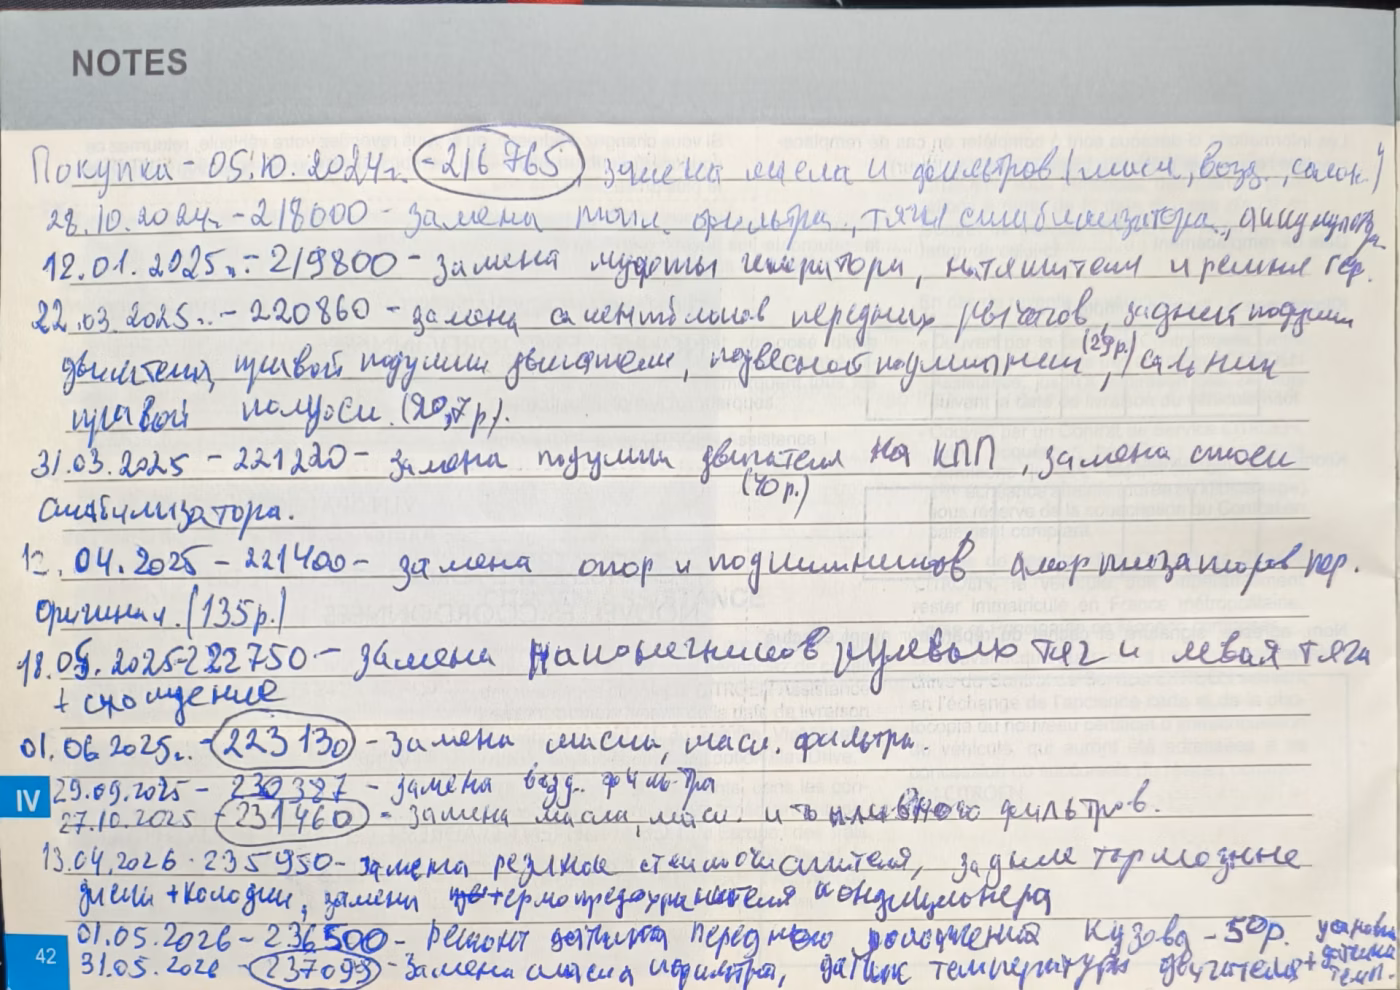 NOTES
Покупка - 05.10.2024г. - 216765, замена масла и фильтров (масл, возд., салон.)
28.10.2024г. - 218000 - замена топл. фильтра, тяги стабилизатора,
12.01.2025г. - 219800 - замена муфты генератора, натяжителя и ремня ген.
22.03.2025г. - 220860 - замена сайлентблоков передних рычагов, задней подушки
двигателя, правой подушки двигателя, подвесной подшипник (29р.), сальник
правой полуоси. (20,7р).
31.03.2025 - 221220 - замена подушки двигателя на КПП, замена стоек
(40р.)
стабилизатора.
04.2025 - 221400 - замена опор и подшипников амортизаторов пер.
оригинал. (135р.)
18.05.2025-222750 - замена наконечников рулевых тяг и левая тяга
+ схождение
01.06.2025г. - 223130 - замена масла, масл. фильтра.
IV 29.09.2025 - 230327 - замена возд. фильтра
27.10.2025 - 231460 - замена масла, масл. и топливного фильтров.
13.04.2026 - 235950 - замена резинок стеклоочистителя, задние тормозные
диски + колодки, замена термопредохранителя кондиционера
01.05.2026 - 236500 - ремонт датчика переднего положения кузова - 50р.
42 31.05.2026 - 237099 - замена масла и фильтра, датчик температуры двигателя + установка датчика темп.